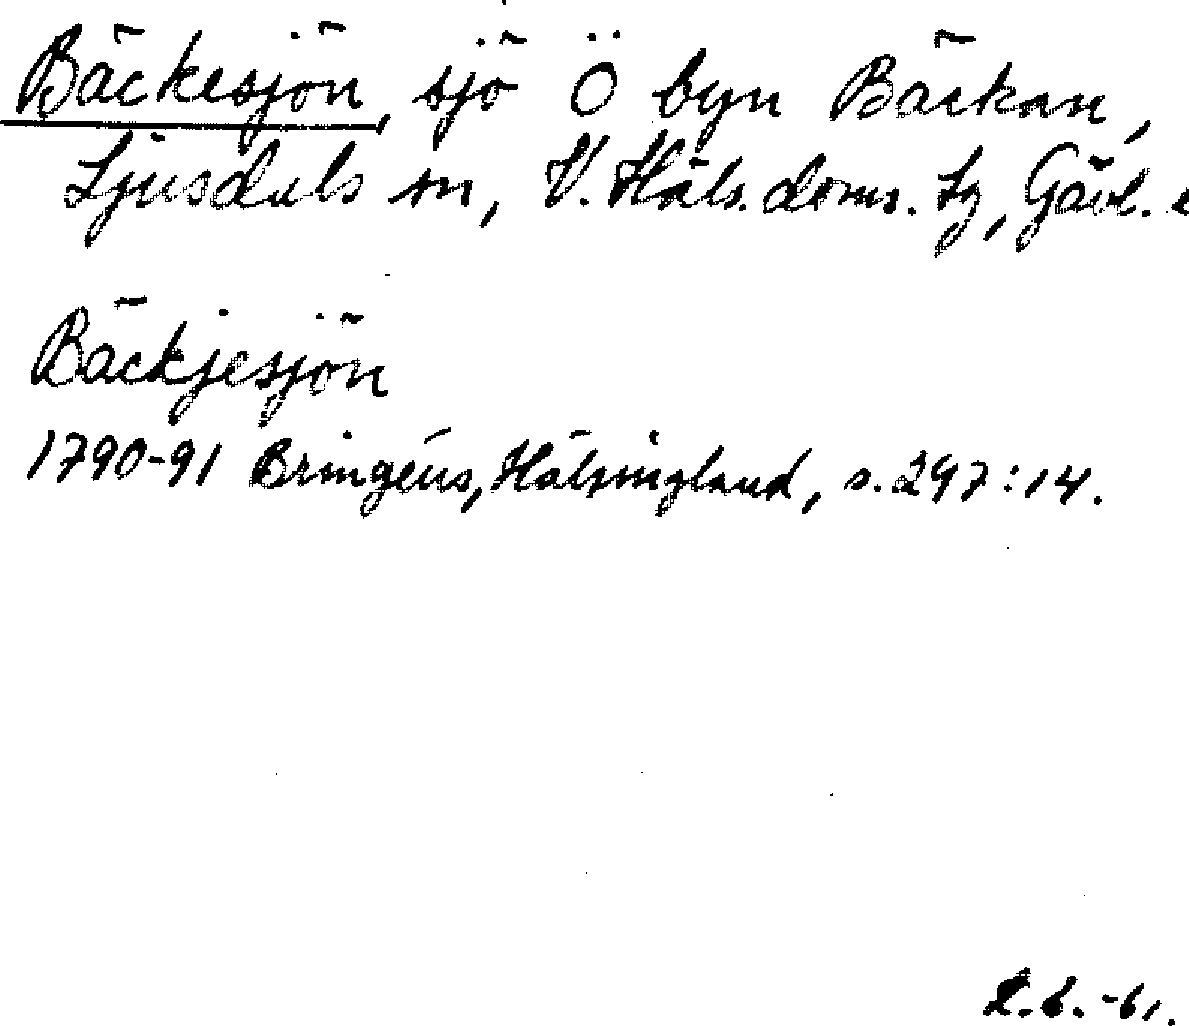 Bäckesjön, sjö Ö byn Bäckan,
Ljusdals sn, V. Häls. doms. tg, Gävl.
Bäckjesjön
1790-91 Bringéus, Hälsingland, s. 297:14.
2.6.-61.